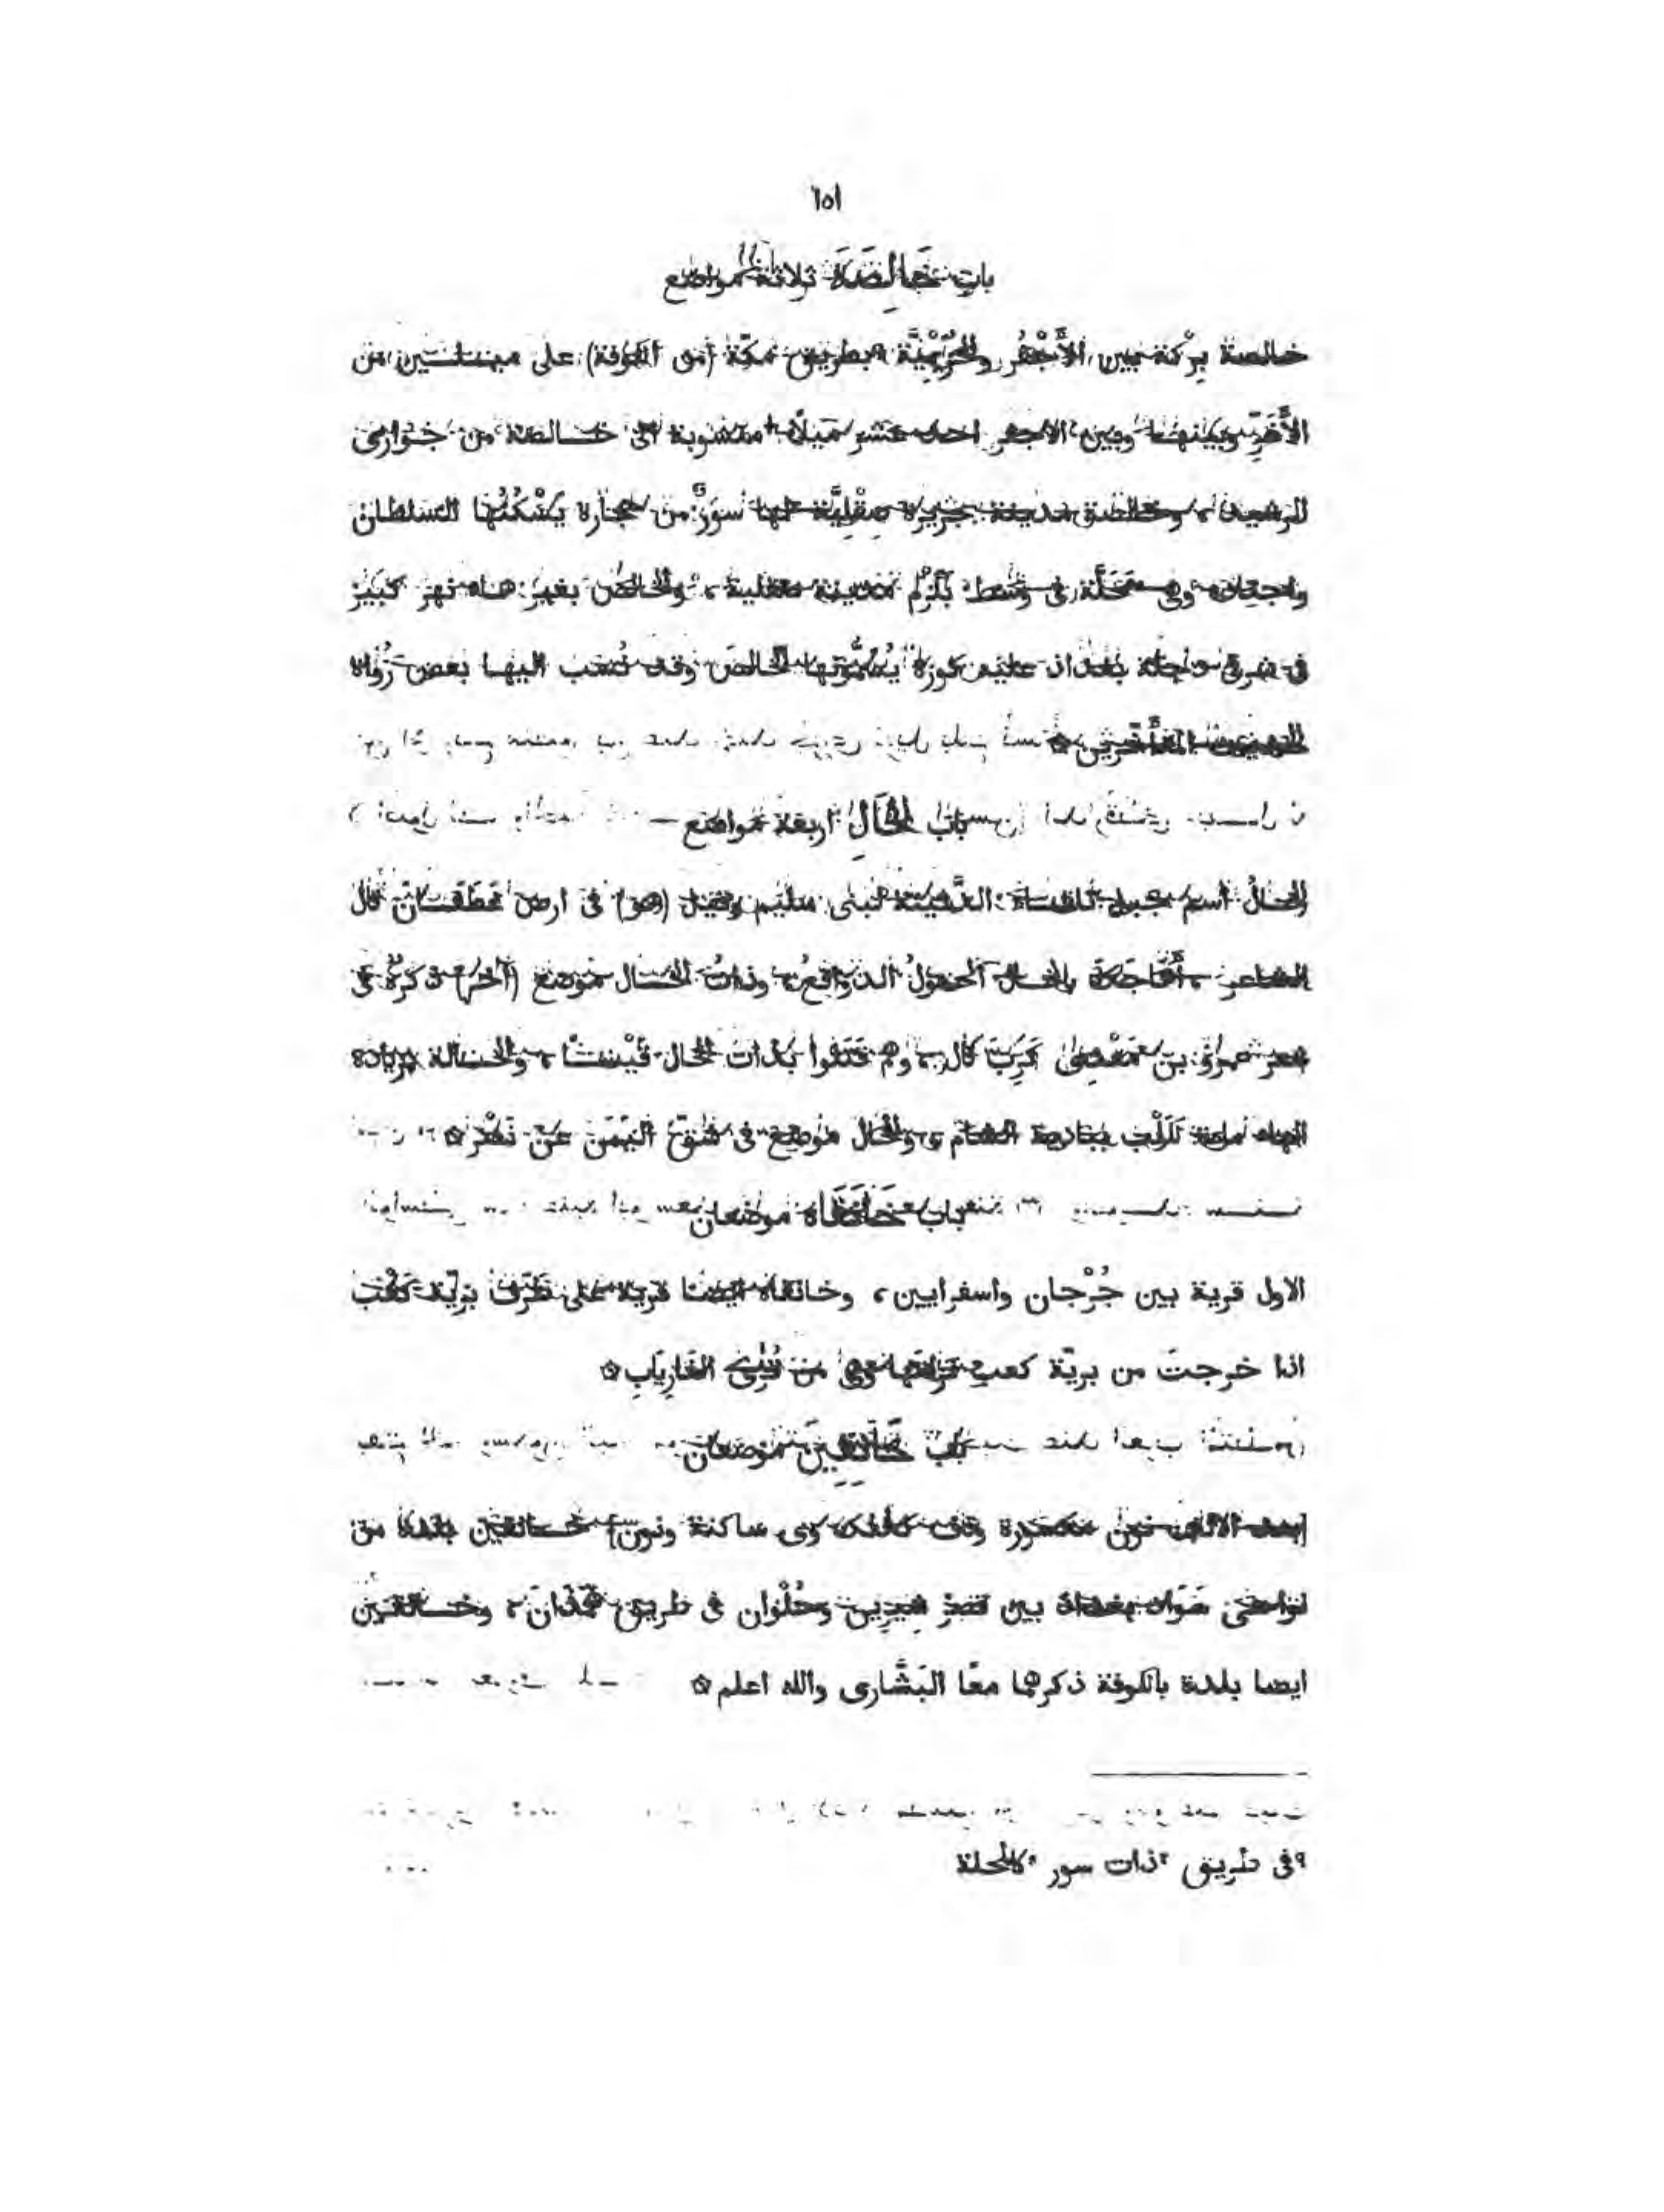 ١٥١
باب خَالِصَةَ ثلاثة مواضع
خالصة بِرْكة بين الأَجْفُر والخُزَيْمِيَّة بطريق مكّة (من الكوفة) على ميلين من
الأَغَرّ وبينها وبين الاجفر احد عشر ميلًا منسوبة الى خالصة من جوارى
الرشيد، وخالصة مدينة بجزيرة صِقْلِيَّة لها سورٌ من حجارة يَسْكُنُها السلطان
واجناده وهى محَلَّة فى وسط بَلَرْم مدينة صقلية، والخالصُ بغير هاء نهر كبير
فى شرقى دجلة بغداد عليه كورة يُسَمُّونها الخالص وقد نُسب اليها بعض رُواة
الحديث المتأخّرين ۞
باب الخَالِ اربعة مواضع
الخالُ اسم جبل تلقاء الدَّثينة لبنى سليم وقيل (هو) فى ارض غطفان قال
الشاعر، أَهَاجَكَ بالخال الحمولُ الدوافعُ، وذاتُ الخال موضع (آخر) ذكره فى
شعر عمرو بن مَعْدِى كَرِبَ قال، وهم قتلوا بذات الخال قَيْسًا، والخالة بزيادة
الهاء ماءة لكَلْب ببادية الشام، والخال موضع فى شقّ اليَمَن عن نصر ۞
باب خَانَقَاه موضعان
الاول قرية بين جُرْجان واسفرايين، وخانقاه ايضا قرية على طَرَف بَرِّيّة كَعْب
اذا خرجتَ من بريّة كعب نزلتها وهى من قُرَى الفَارِيَابِ ۞
باب خَانِقِينَ موضعان
(بعد الالف نون مكسورة وقاف كذلك وى ساكنة ونون) خانقين بلدة من
نواحى سَوَاد بغداد بين قصر شِيرِين وحُلْوان فى طريق هَمَذَان، وخانقين
ايضا بلدة بالكوفة ذكرهما معًا البَشَّارى والله اعلم ۞
فى طريق ذات سور كالمحلة